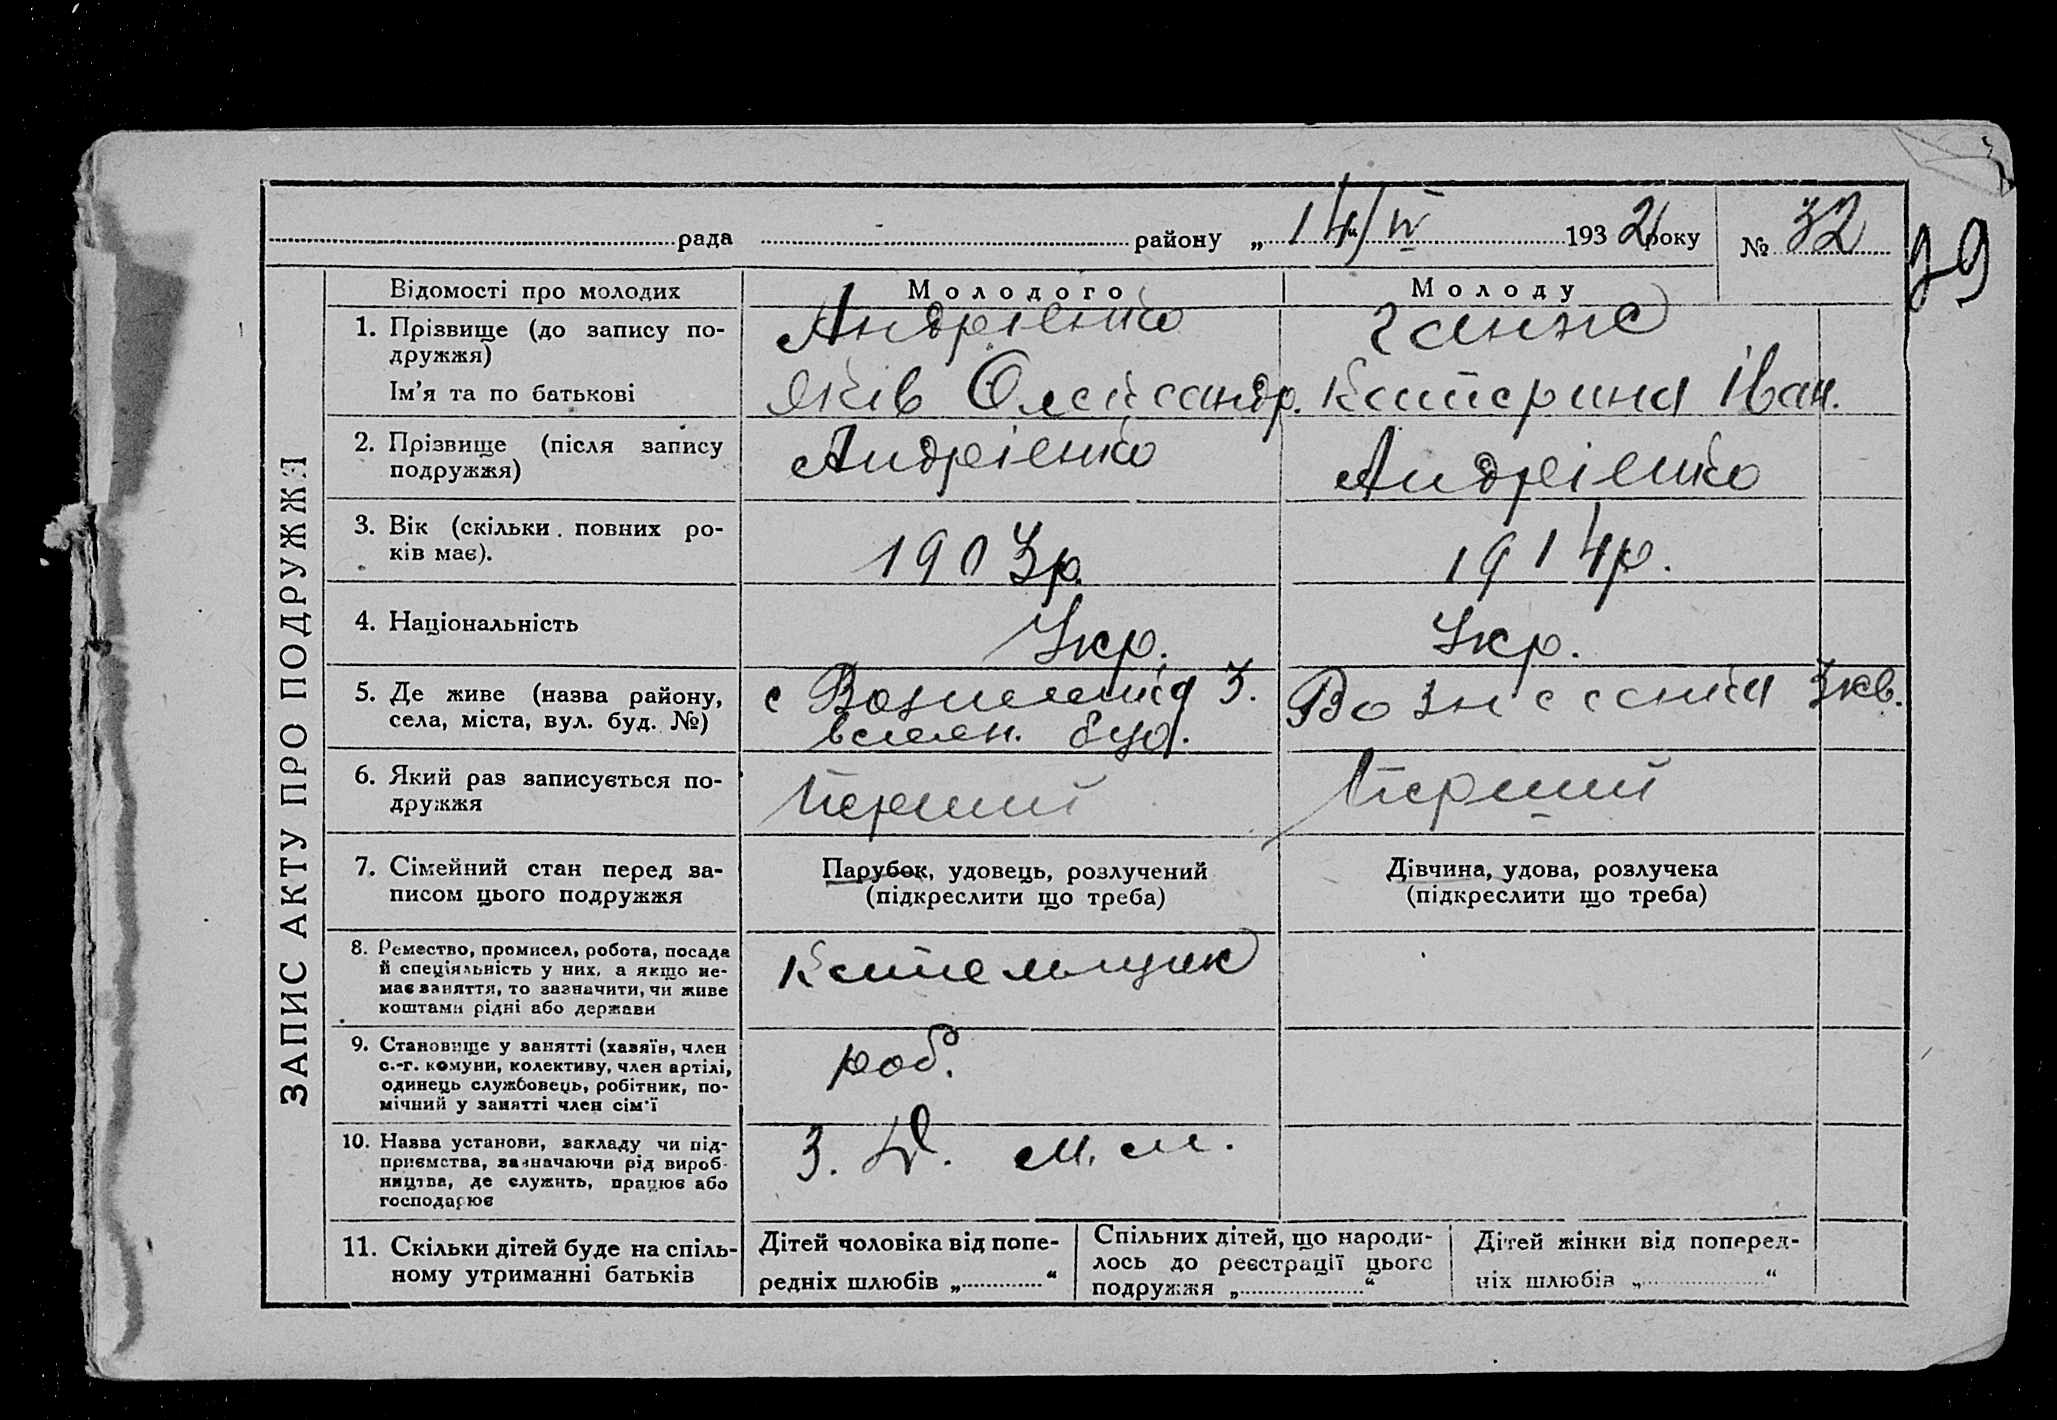 рада району „ 14 “ IV 1932 року № 32
29
ЗАПИС АКТУ ПРО ПОДРУЖЖЯ
Відомості про молодих Молодого Молоду
1. Прізвище (до запису по-
дружжя)
Андрієнко Ганже
Ім'я та по батькові
Яків Олександр. Катерина Іван.
2. Прізвище (після запису
подружжя)
Андрієнко Андрієнко
3. Вік (скільки повних ро-
ків має).
1903р. 1914р.
4. Національність
Укр. Укр.
5. Де живе (назва району,
села, міста, вул. буд. №)
с Вознесенка 3. Вознесенка 3кв.
буд.
6. Який раз записується по-
дружжя
Перший Перший
7. Сімейний стан перед за-
писом цього подружжя
Парубок, удовець, розлучений
(підкреслити що треба)
Дівчина, удова, розлучека
(підкреслити що треба)
8. Ремество, промисел, робота, посада
й спеціяльність у них, а якщо не-
має заняття, то зазначити, чи живе
коштами рідні або держави
Котельщик
9. Становище у занятті (хазяїн, член
с.-г. комуни, колективу, член артілі,
одинець службовець, робітник, по-
мічний у занятті член сім'ї
роб.
10. Назва установи, закладу чи під-
приємства, зазначаючи рід вироб-
ництва, де служить, працює або
господарює
З. Д. М. М.
11. Скільки дітей буде на спіль-
ному утриманні батьків
Дітей чоловіка від попе-
редніх шлюбів „ “
Спільних дітей, що народи-
лось до реєстрації цього
подружжя „ “
Дітей жінки від поперед-
ніх шлюбів „ “